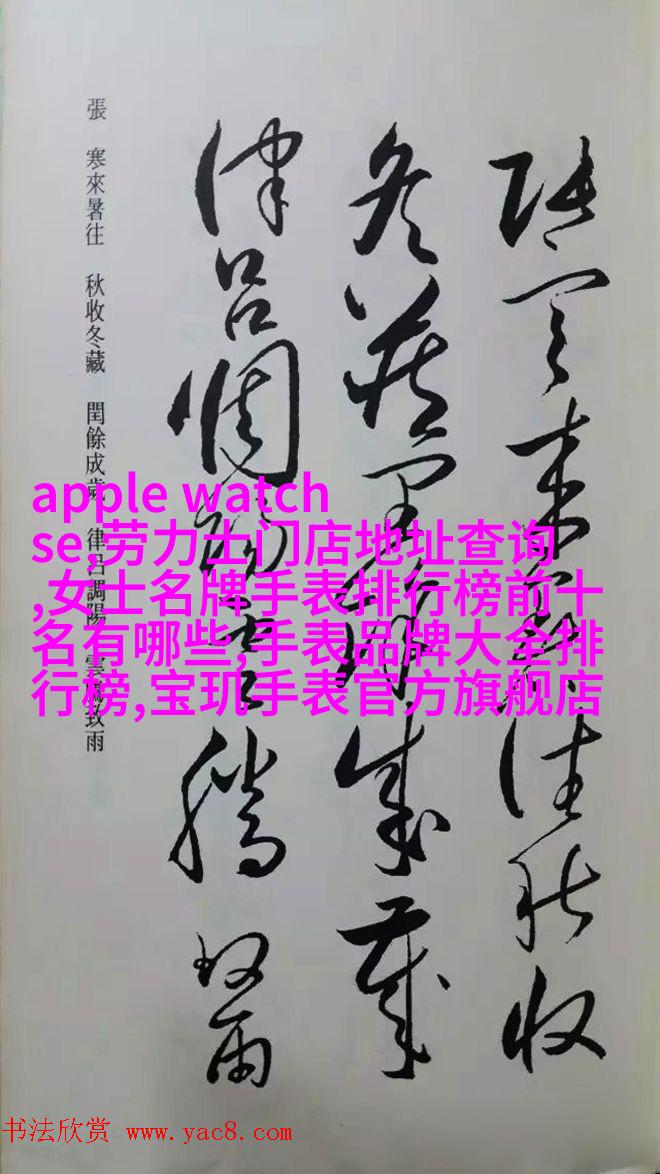 張寒來暑往秋收
冬藏閏餘成歲
律呂調陽雲騰致雨
張 寒來暑往 秋收冬藏 閏餘成歲 律呂調陽 雲騰致雨
apple watch
se,劳力士门店地址查询
,女士名牌手表排行榜前十
名有哪些,手表品牌大全排
行榜,宝玑手表官方旗舰店
书法欣赏 www.yac8.com